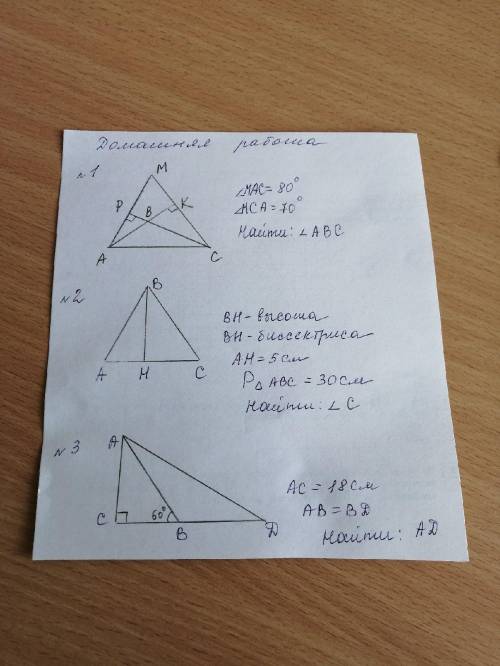 Домашняя работа
№1
M
P
B
K
A
C
∠MAC = 80°
∠MCA = 70°
Найти: ∠ABC
№2
B
A
H
C
BH - высота
BH - биссектриса
AH = 5 см
P△ABC = 30 см
Найти: ∠C
№3
A
C
60°
B
D
AC = 18 см
AB = BD
Найти: AD